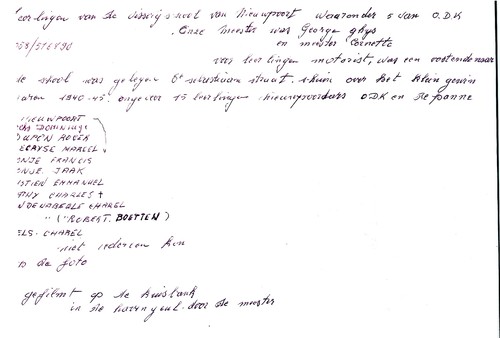 leerlingen van de visserijschool van Nieuwpoort waaronder 5 van O.D.K
. Onze meester was Georges ghys
en meester Cornette
voor leerlingen motorist, was een oostendenaar
de school was gelegen straat. schuin over het klein gewin
jaren 1940-45. ongeveer 15 leerlingen Nieuwpoorters ODK en de panne
NIEUWPOORT
DOMININGE
DUPON ROGER
DECAYSE MARCEL
ONJE FRANCIS
ONJE. JAAK
STIEN EMMANUEL
CHARLES +
NDENABEELE CHAREL
" ("ROBERT. BOETTEN)
ELS. CHAREL
niet iedereen kon
op de foto
gefilmt op de kuisbank
in de havengeul. door de meester